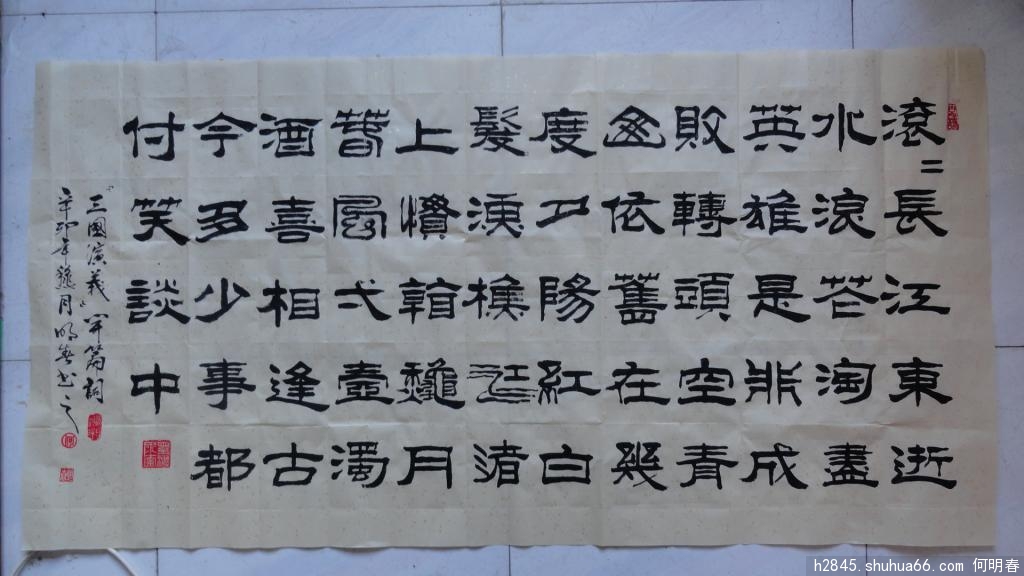 滾二長江東逝
水浪花淘盡
英雄是非成
敗轉頭空青
山依舊在幾
度夕陽紅白
髮漁樵江渚
上慣看龝月
春風弌壺濁
酒喜相逢古
今多少事都
付笑談中
『三國演義』開篇詞
辛卯年龝月明春書之
h2845.shuhua66.com 何明春